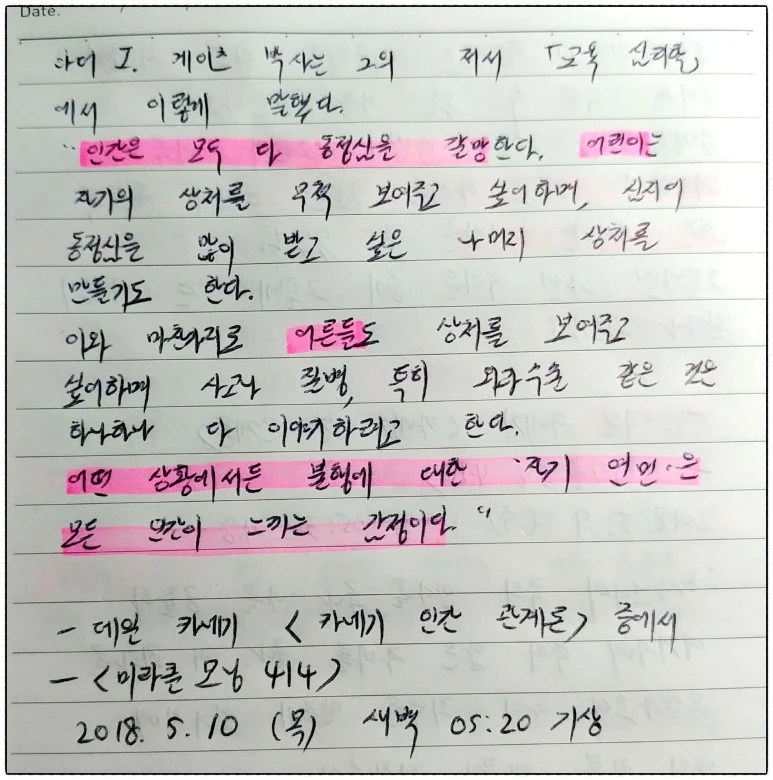 Date.
아더 I. 게이츠 박사는 그의 저서 「교육 심리학」
에서 이렇게 말했다.
"인간은 모두 다 동정심을 갈망한다. 어린이는
자기의 상처를 무척 보여주고 싶어하며, 심지어
동정심을 많이 받고 싶은 나머지 상처를
만들기도 한다.
이와 마찬가지로 어른들도 상처를 보여주고
싶어하며 사고나 질병, 특히 외과수술 같은 것은
하나하나 다 이야기하려고 한다.
어떤 상황에서든 불행에 대한 '자기 연민'은
모든 인간이 느끼는 감정이다."
- 데일 카네기 <카네기 인간 관계론> 중에서
- <미라클 모닝 414>
2018. 5. 10 (목) 새벽 05:20 기상